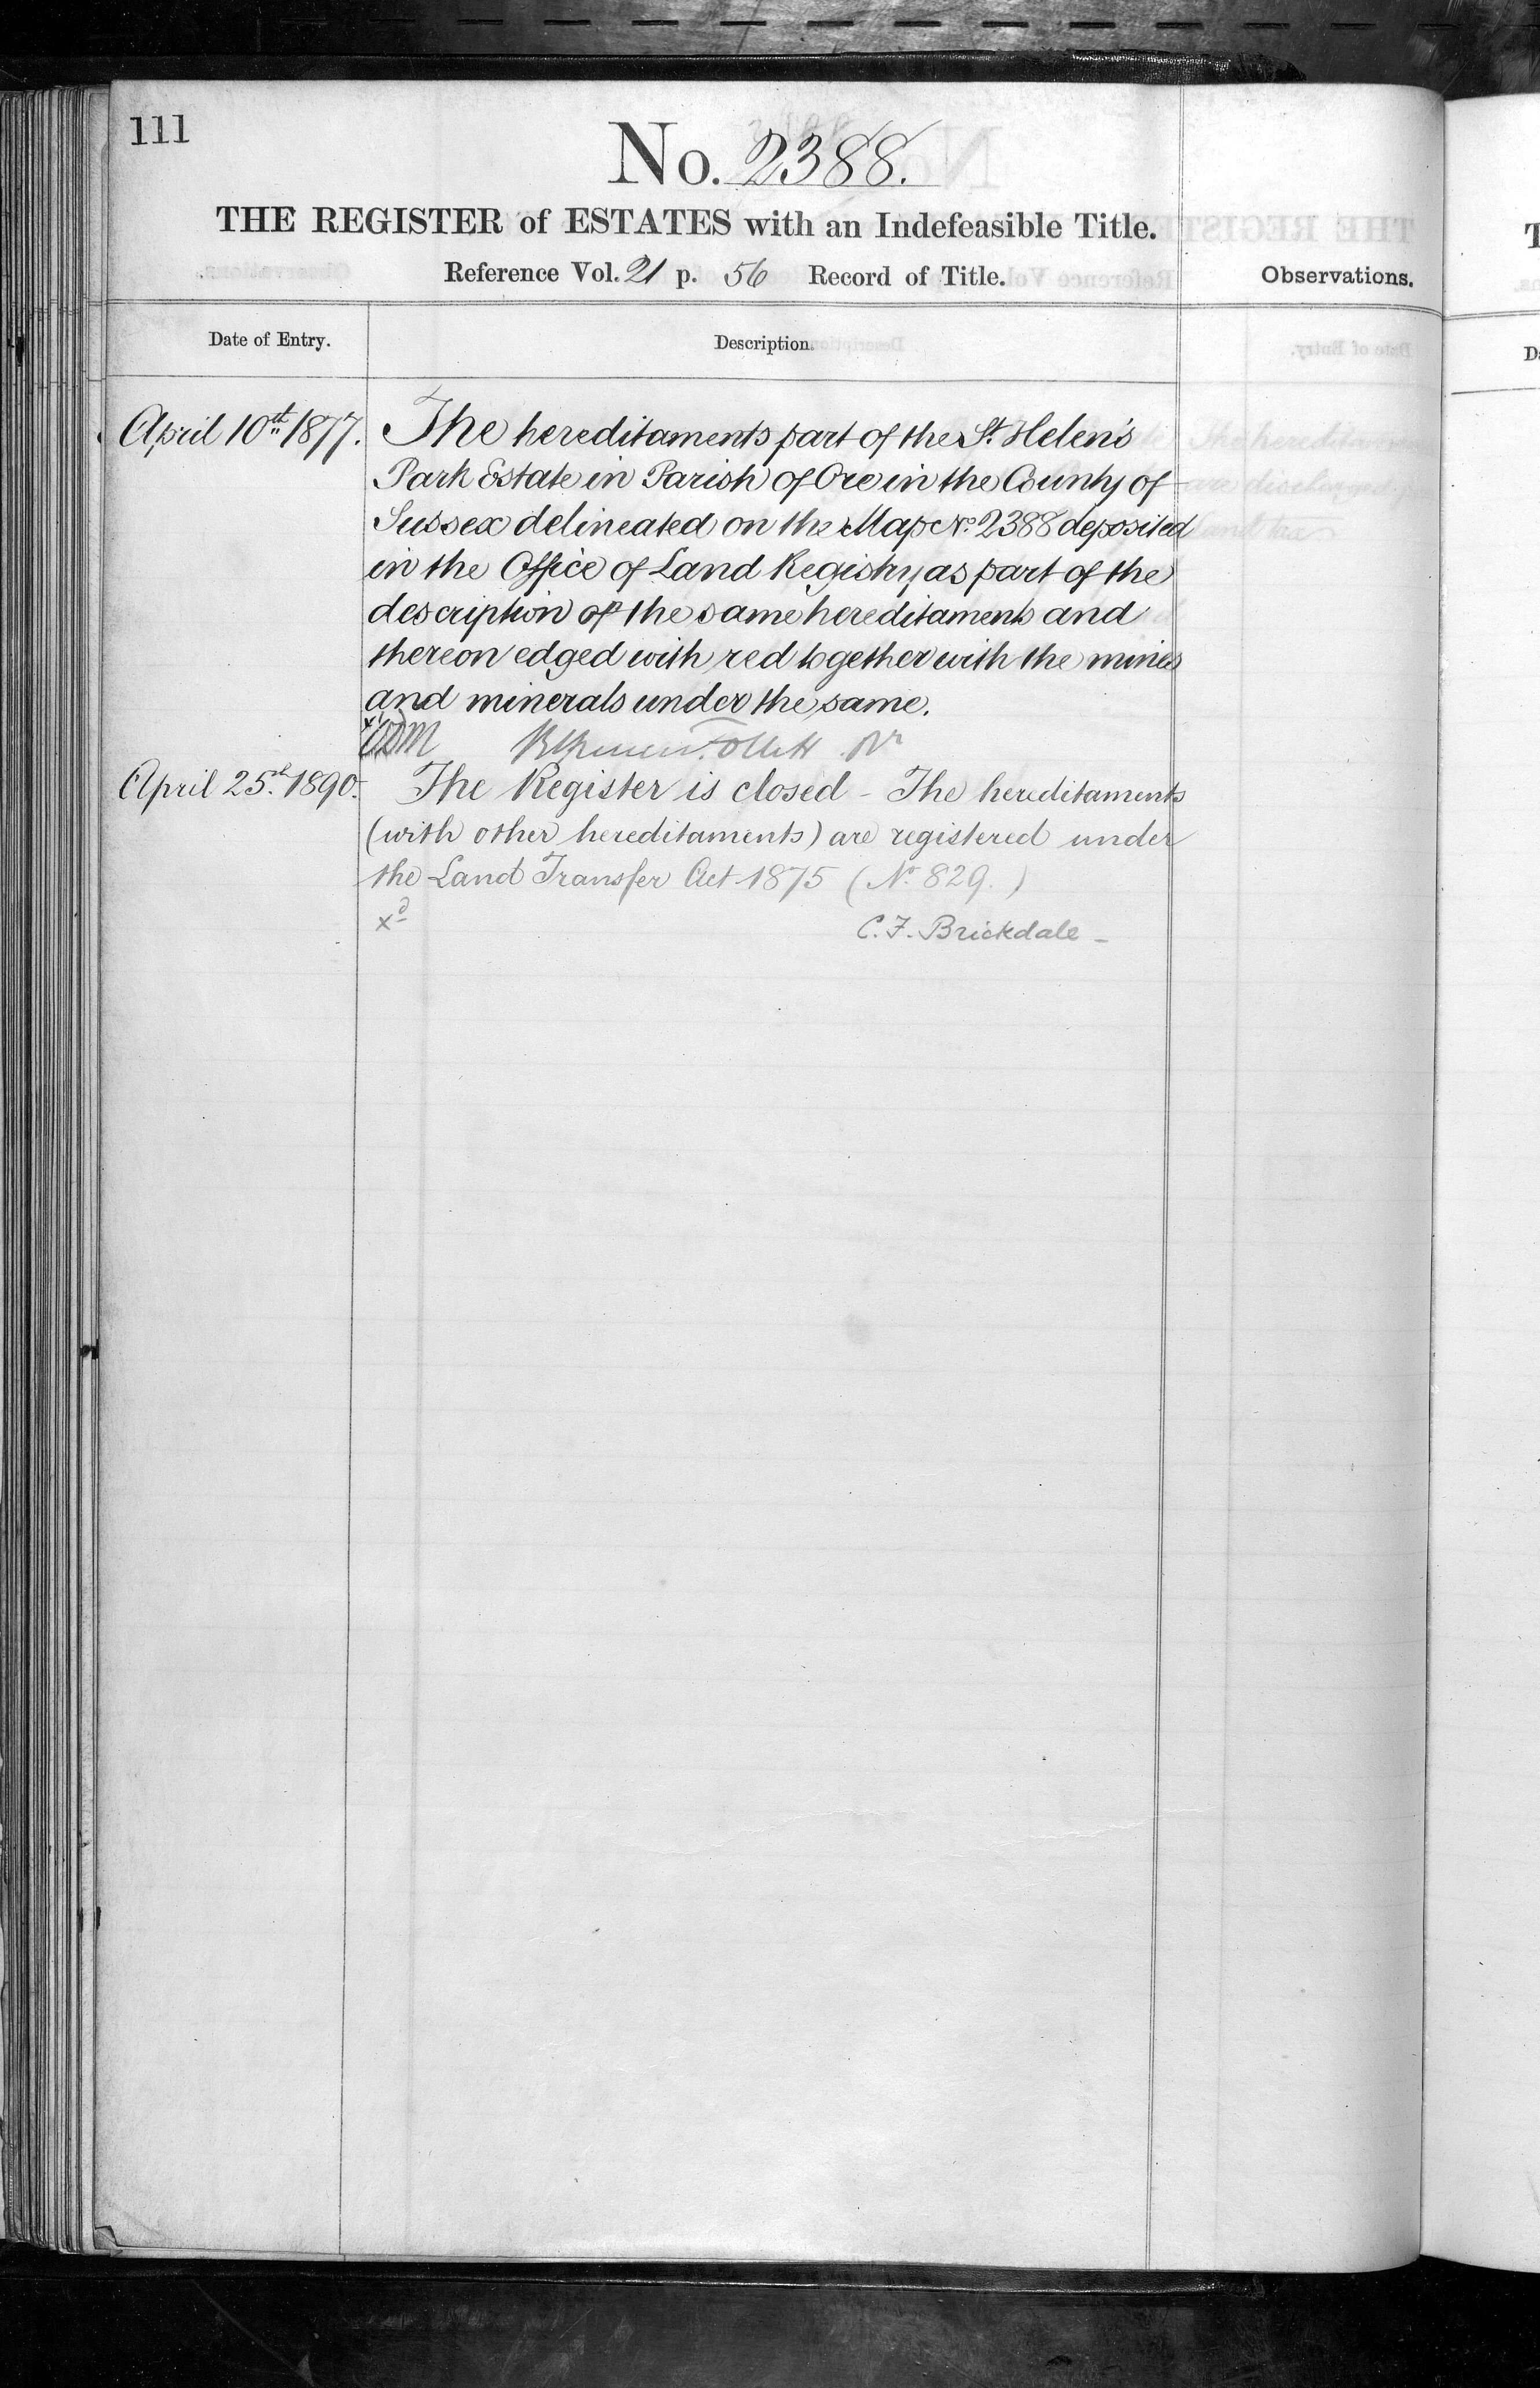 111
No. 2388.
THE REGISTER of ESTATES with an Indefeasible Title.
Reference Vol. 21 p. 56 Record of Title.
Observations.
Date of Entry.
Description.
April 10th 1877. The hereditaments part of the St. Helen's
Park Estate in Parish of Ore in the County of
Sussex delineated on the Map No. 2388 deposited
in the Office of Land Registry as part of the
description of the same hereditaments and
thereon edged with red together with the mines
and minerals under the same.
Follett
April 25th. 1890. The Register is closed - The hereditaments
(with other hereditaments) are registered under
the Land Transfer Act 1875 (No. 829.)
xd C. F. Brickdale -